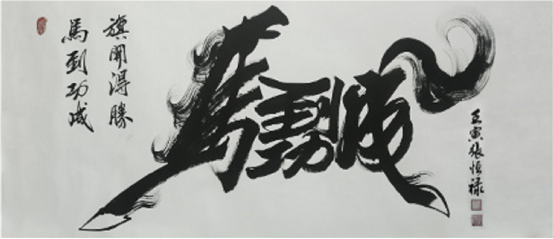 旗開得勝
馬到功成
馬到功成
壬寅張恒祿